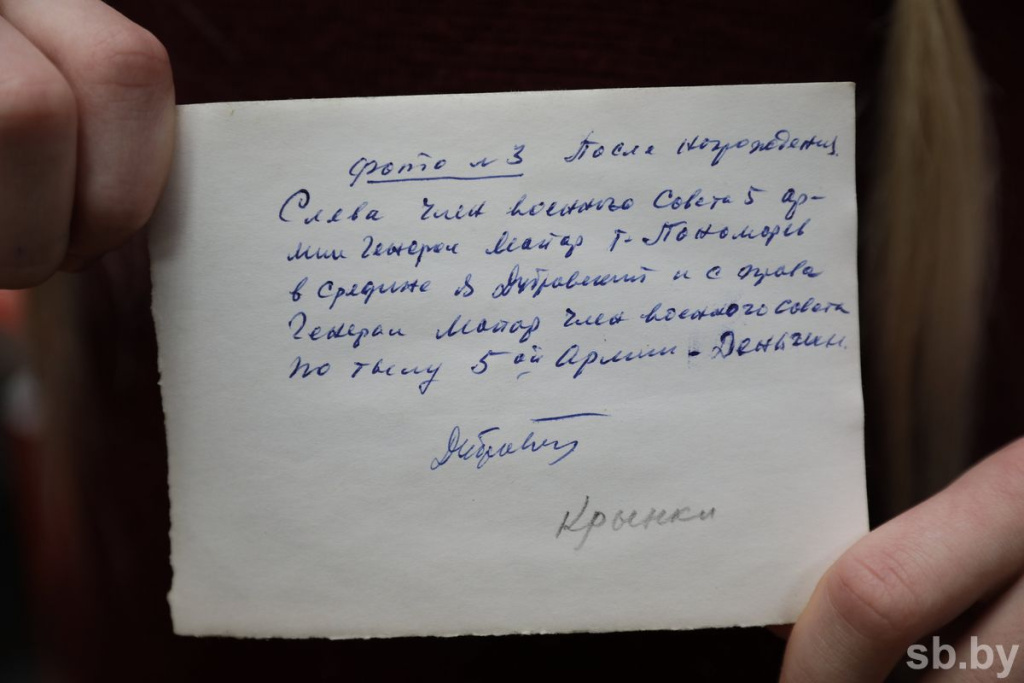 Фото № 3 После нограждения.
Слева Член военного Совета 5 ар-
мии Генерал Маиор т-Пономорев
в средине Я Дубровский и с права
Генерал Маиор Член военного совета
по тылу 5ой Армии - Деньгин.
Крынки
sb.by